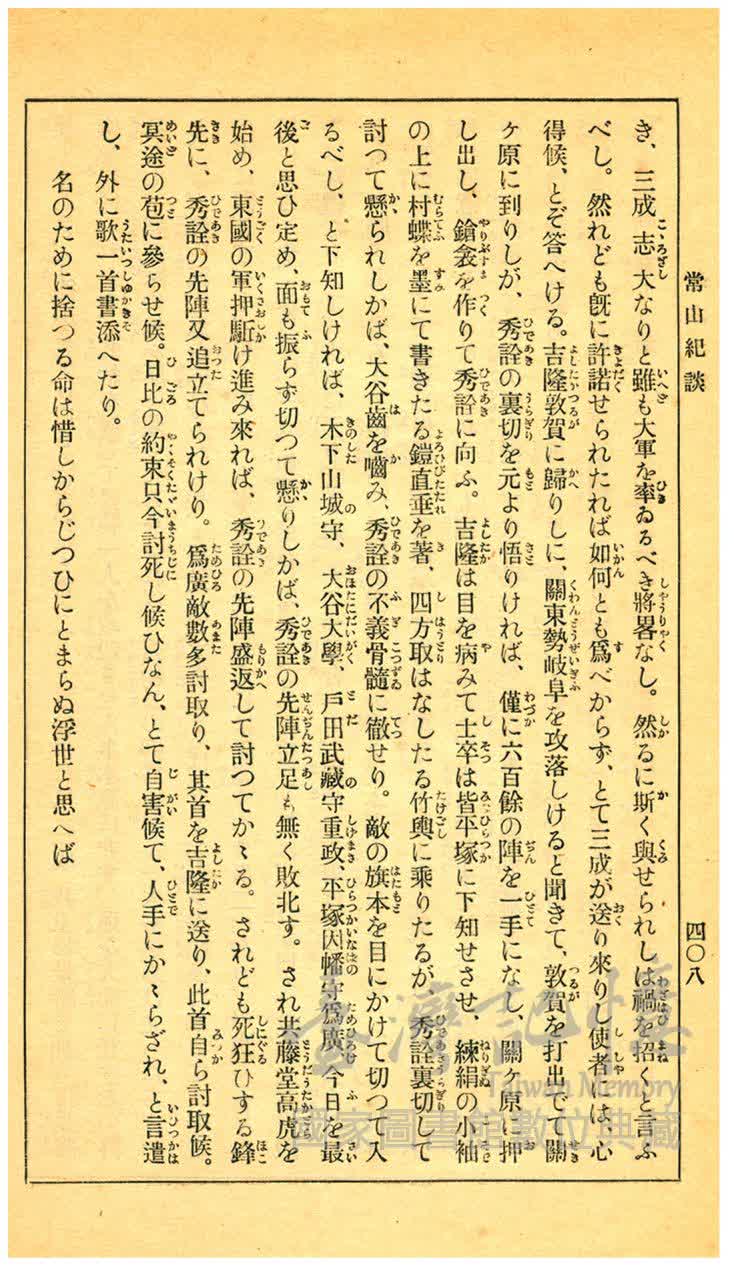 常山紀談
四〇八
き、三成志大なりと雖も大軍を率ゐるべき將畧なし。然るに斯く與せられしは禍を招くと言ふ
べし。然れども既に許諾せられたれば如何とも爲べからず、とて三成が送り來りし使者には、心
得候、とぞ答へける。吉隆敦賀に歸りしに、關東勢岐阜を攻落しけると聞きて、敦賀を打出でて關
ヶ原に到りしが、秀詮の裏切を元より悟りければ、僅に六百餘の陣を一手になし、關ヶ原に押
し出し、鎗衾を作りて秀詮に向ふ。吉隆は目を病みて士卒は皆平塚に下知せさせ、練絹の小袖
の上に村蝶を墨にて書きたる鎧直垂を著、四方取はなしたる竹輿に乘りたるが、秀詮裏切して
討つて懸られしかば、大谷齒を嚙み、秀詮の不義骨髓に徹せり。敵の旗本を目にかけて切つて入
るべし、と下知しければ、木下山城守、大谷大學、戶田武藏守重政、平塚因幡守爲廣、今日を最
後と思ひ定め、面も振らず切つて懸りしかば、秀詮の先陣立足も無く敗北す。され共藤堂高虎を
始め、東國の軍押駈け進み來れば、秀詮の先陣盛返して討つてかゝる。されども死狂ひする鋒
先に、秀詮の先陣又追立てられけり。爲廣敵數多討取り、其首を吉隆に送り、此首自ら討取候。
冥途の苞に參らせ候。日比の約束只今討死し候ひなん、とて自害候て、人手にかゝらざれ、と言遣
し、外に歌一首書添へたり。
名のために捨つる命は惜しからじつひにとまらぬ浮世と思へば
臺灣記憶
Taiwan Memory
國家圖書館數位典藏